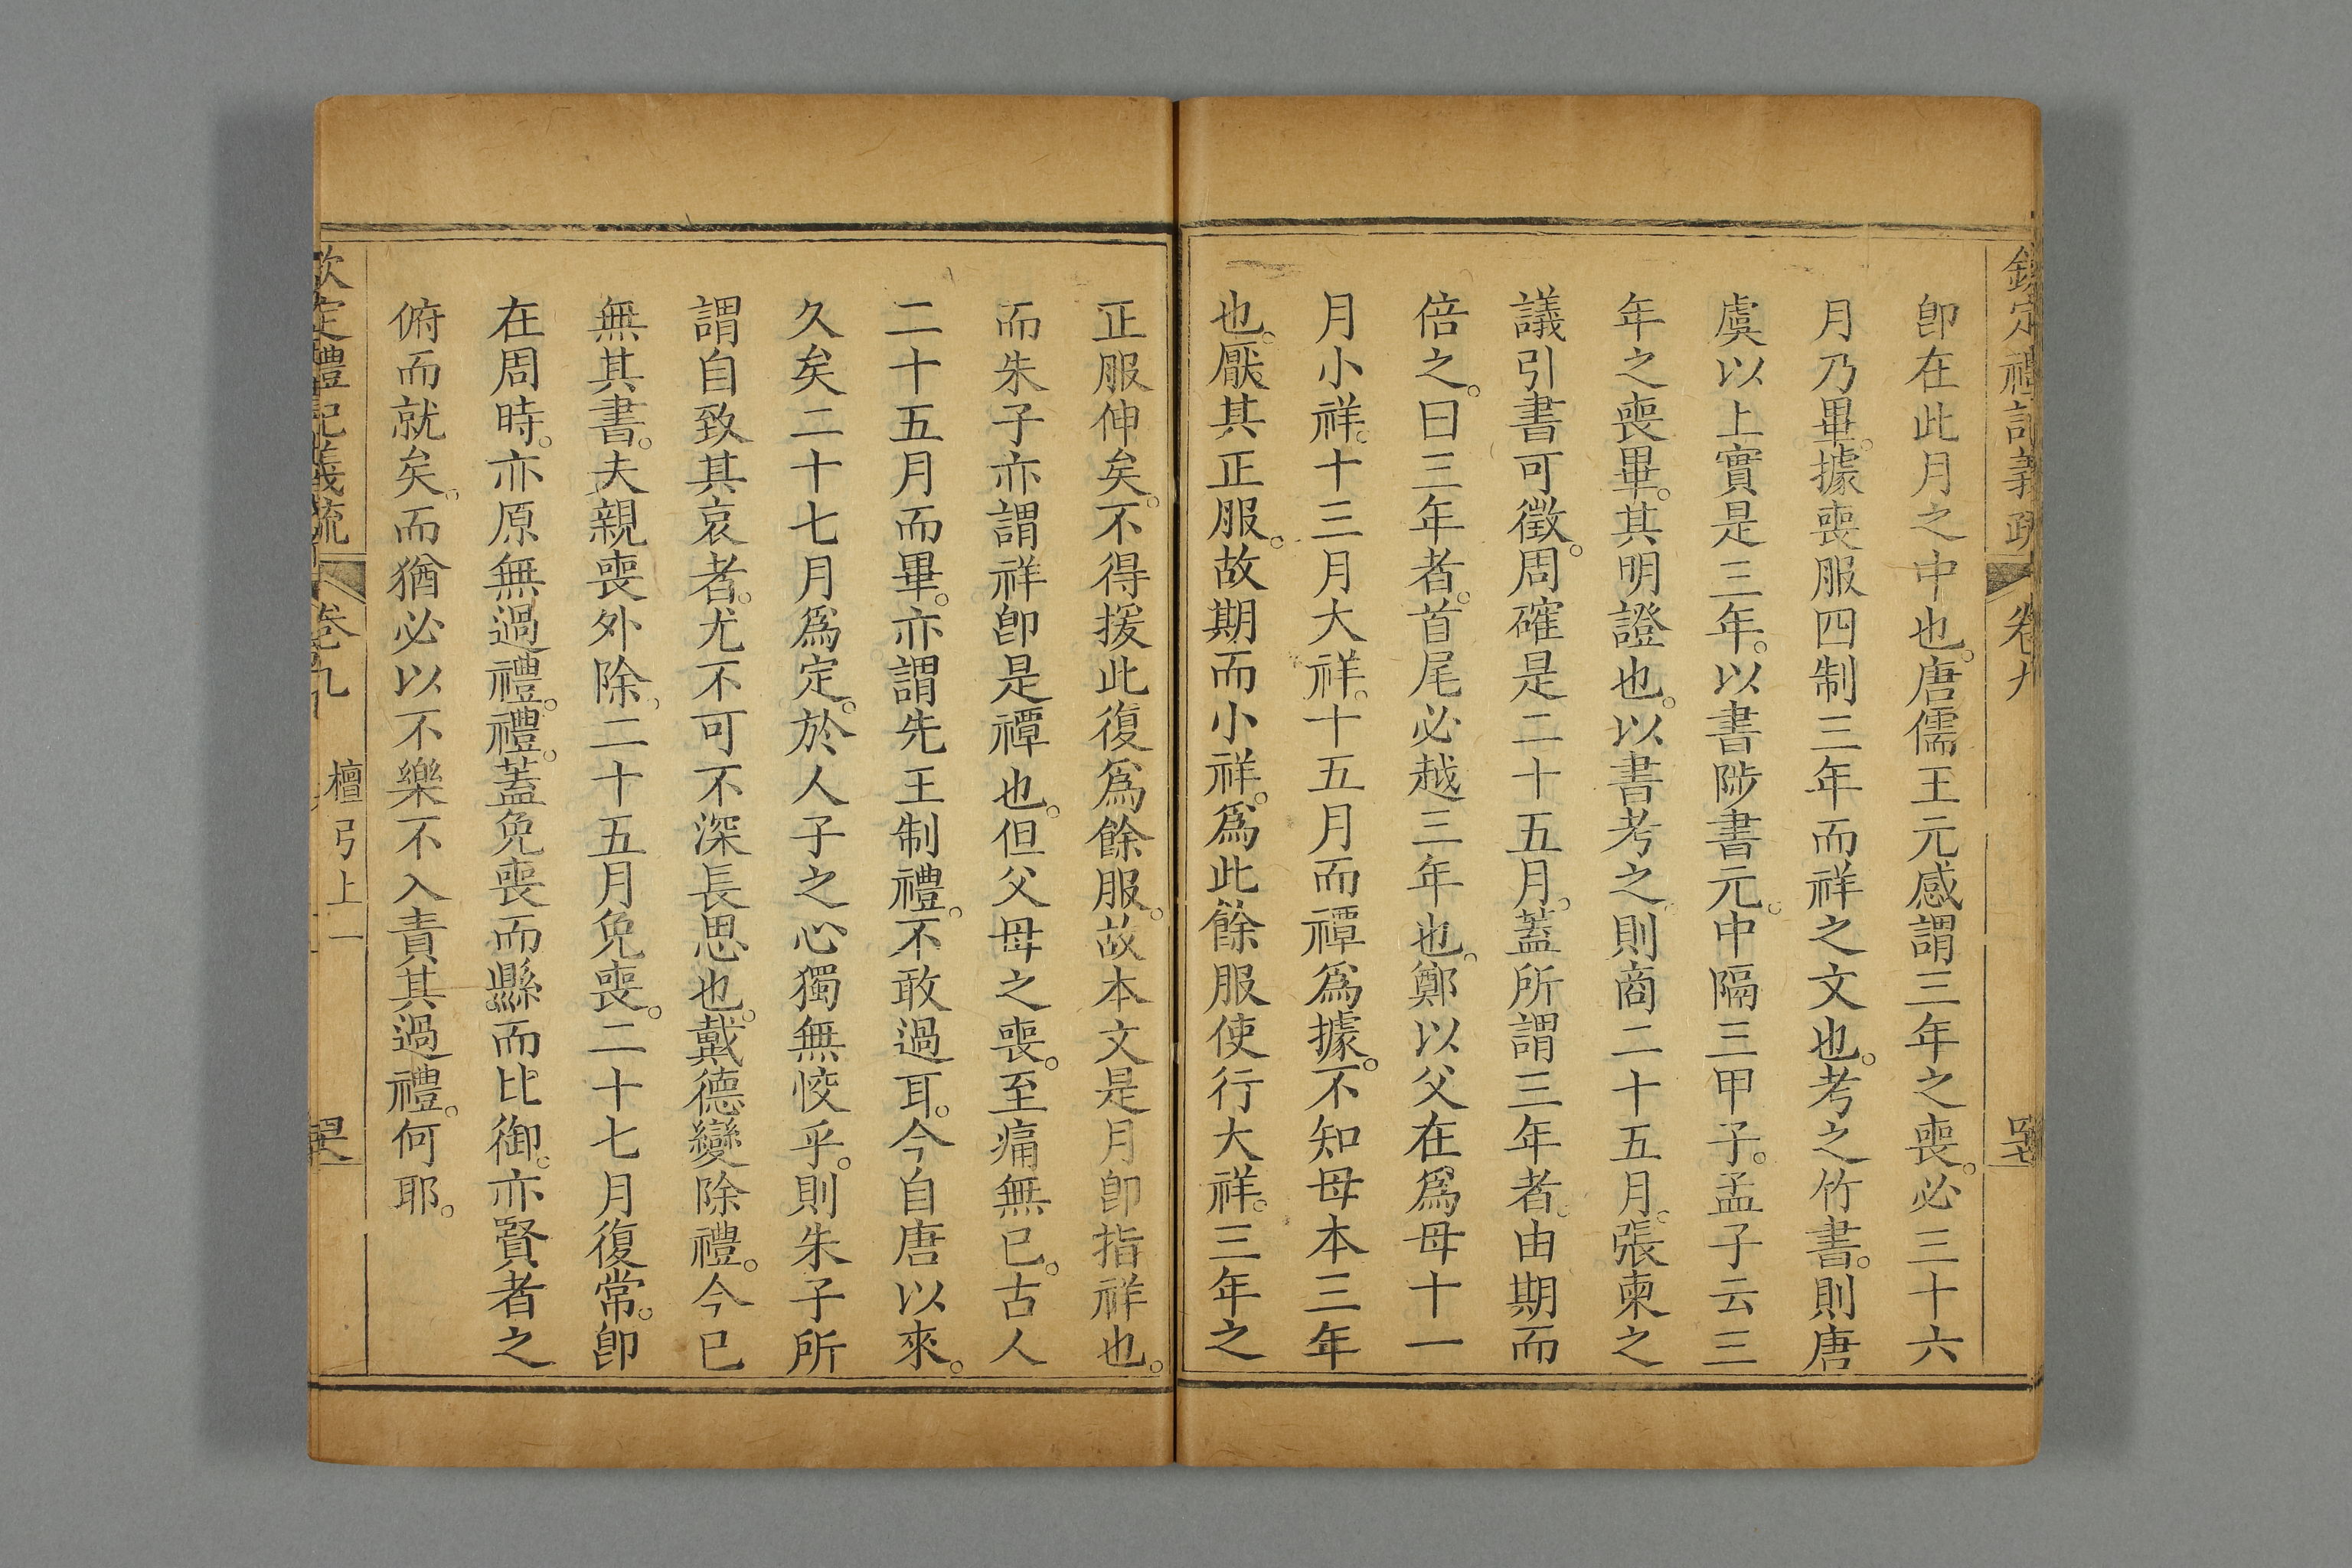 欽定禮記義疏 卷九
卽在此月之中也。唐儒王元感謂三年之喪。必三十六
月乃畢。據喪服四制三年而祥之文也。考之竹書。則唐
虞以上實是三年。以書陟書元。中隔三甲子。孟子云三
年之喪畢。其明證也。以書考之。則商二十五月。張柬之
議引書可徵。周確是二十五月。蓋所謂三年者。由期而
倍之。曰三年者。首尾必越三年也。鄭以父在爲母十一
月小祥。十三月大祥。十五月而禫爲據。不知母本三年
也。厭其正服。故期而小祥。爲此餘服使行大祥。三年之
正服伸矣。不得援此復爲餘服。故本文是月卽指祥也。
而朱子亦謂祥卽是禫也。但父母之喪。至痛無已。古人
二十五月而畢。亦謂先王制禮。不敢過耳。今自唐以來。
久矣二十七月爲定。於人子之心獨無恔乎。則朱子所
謂自致其哀者。尤不可不深長思也。戴德變除禮。今已
無其書。夫親喪外除、二十五月免喪。二十七月復常。卽
在周時。亦原無過禮。禮。蓋免喪而縣而比御。亦賢者之
俯而就矣。而猶必以不樂不入責其過禮。何耶。
欽定禮記義疏 卷九 檀弓上一